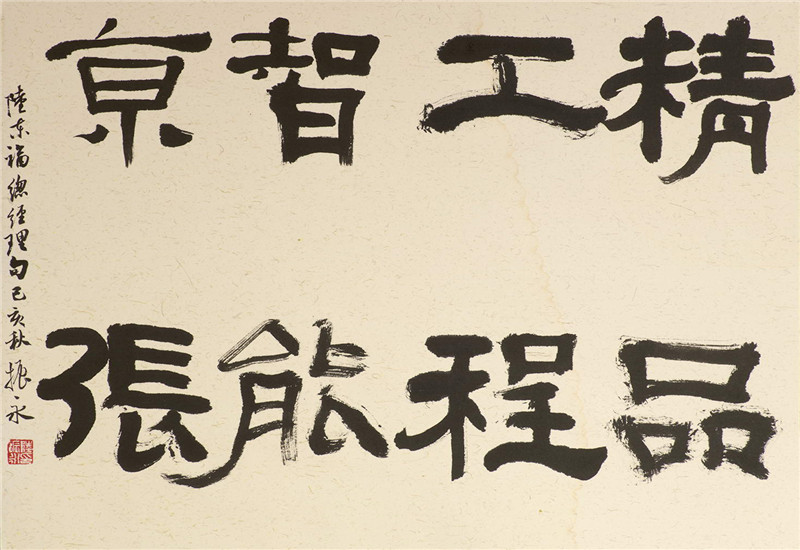 精品
工程
智能
京張
陸东福總經理句己亥秋振永